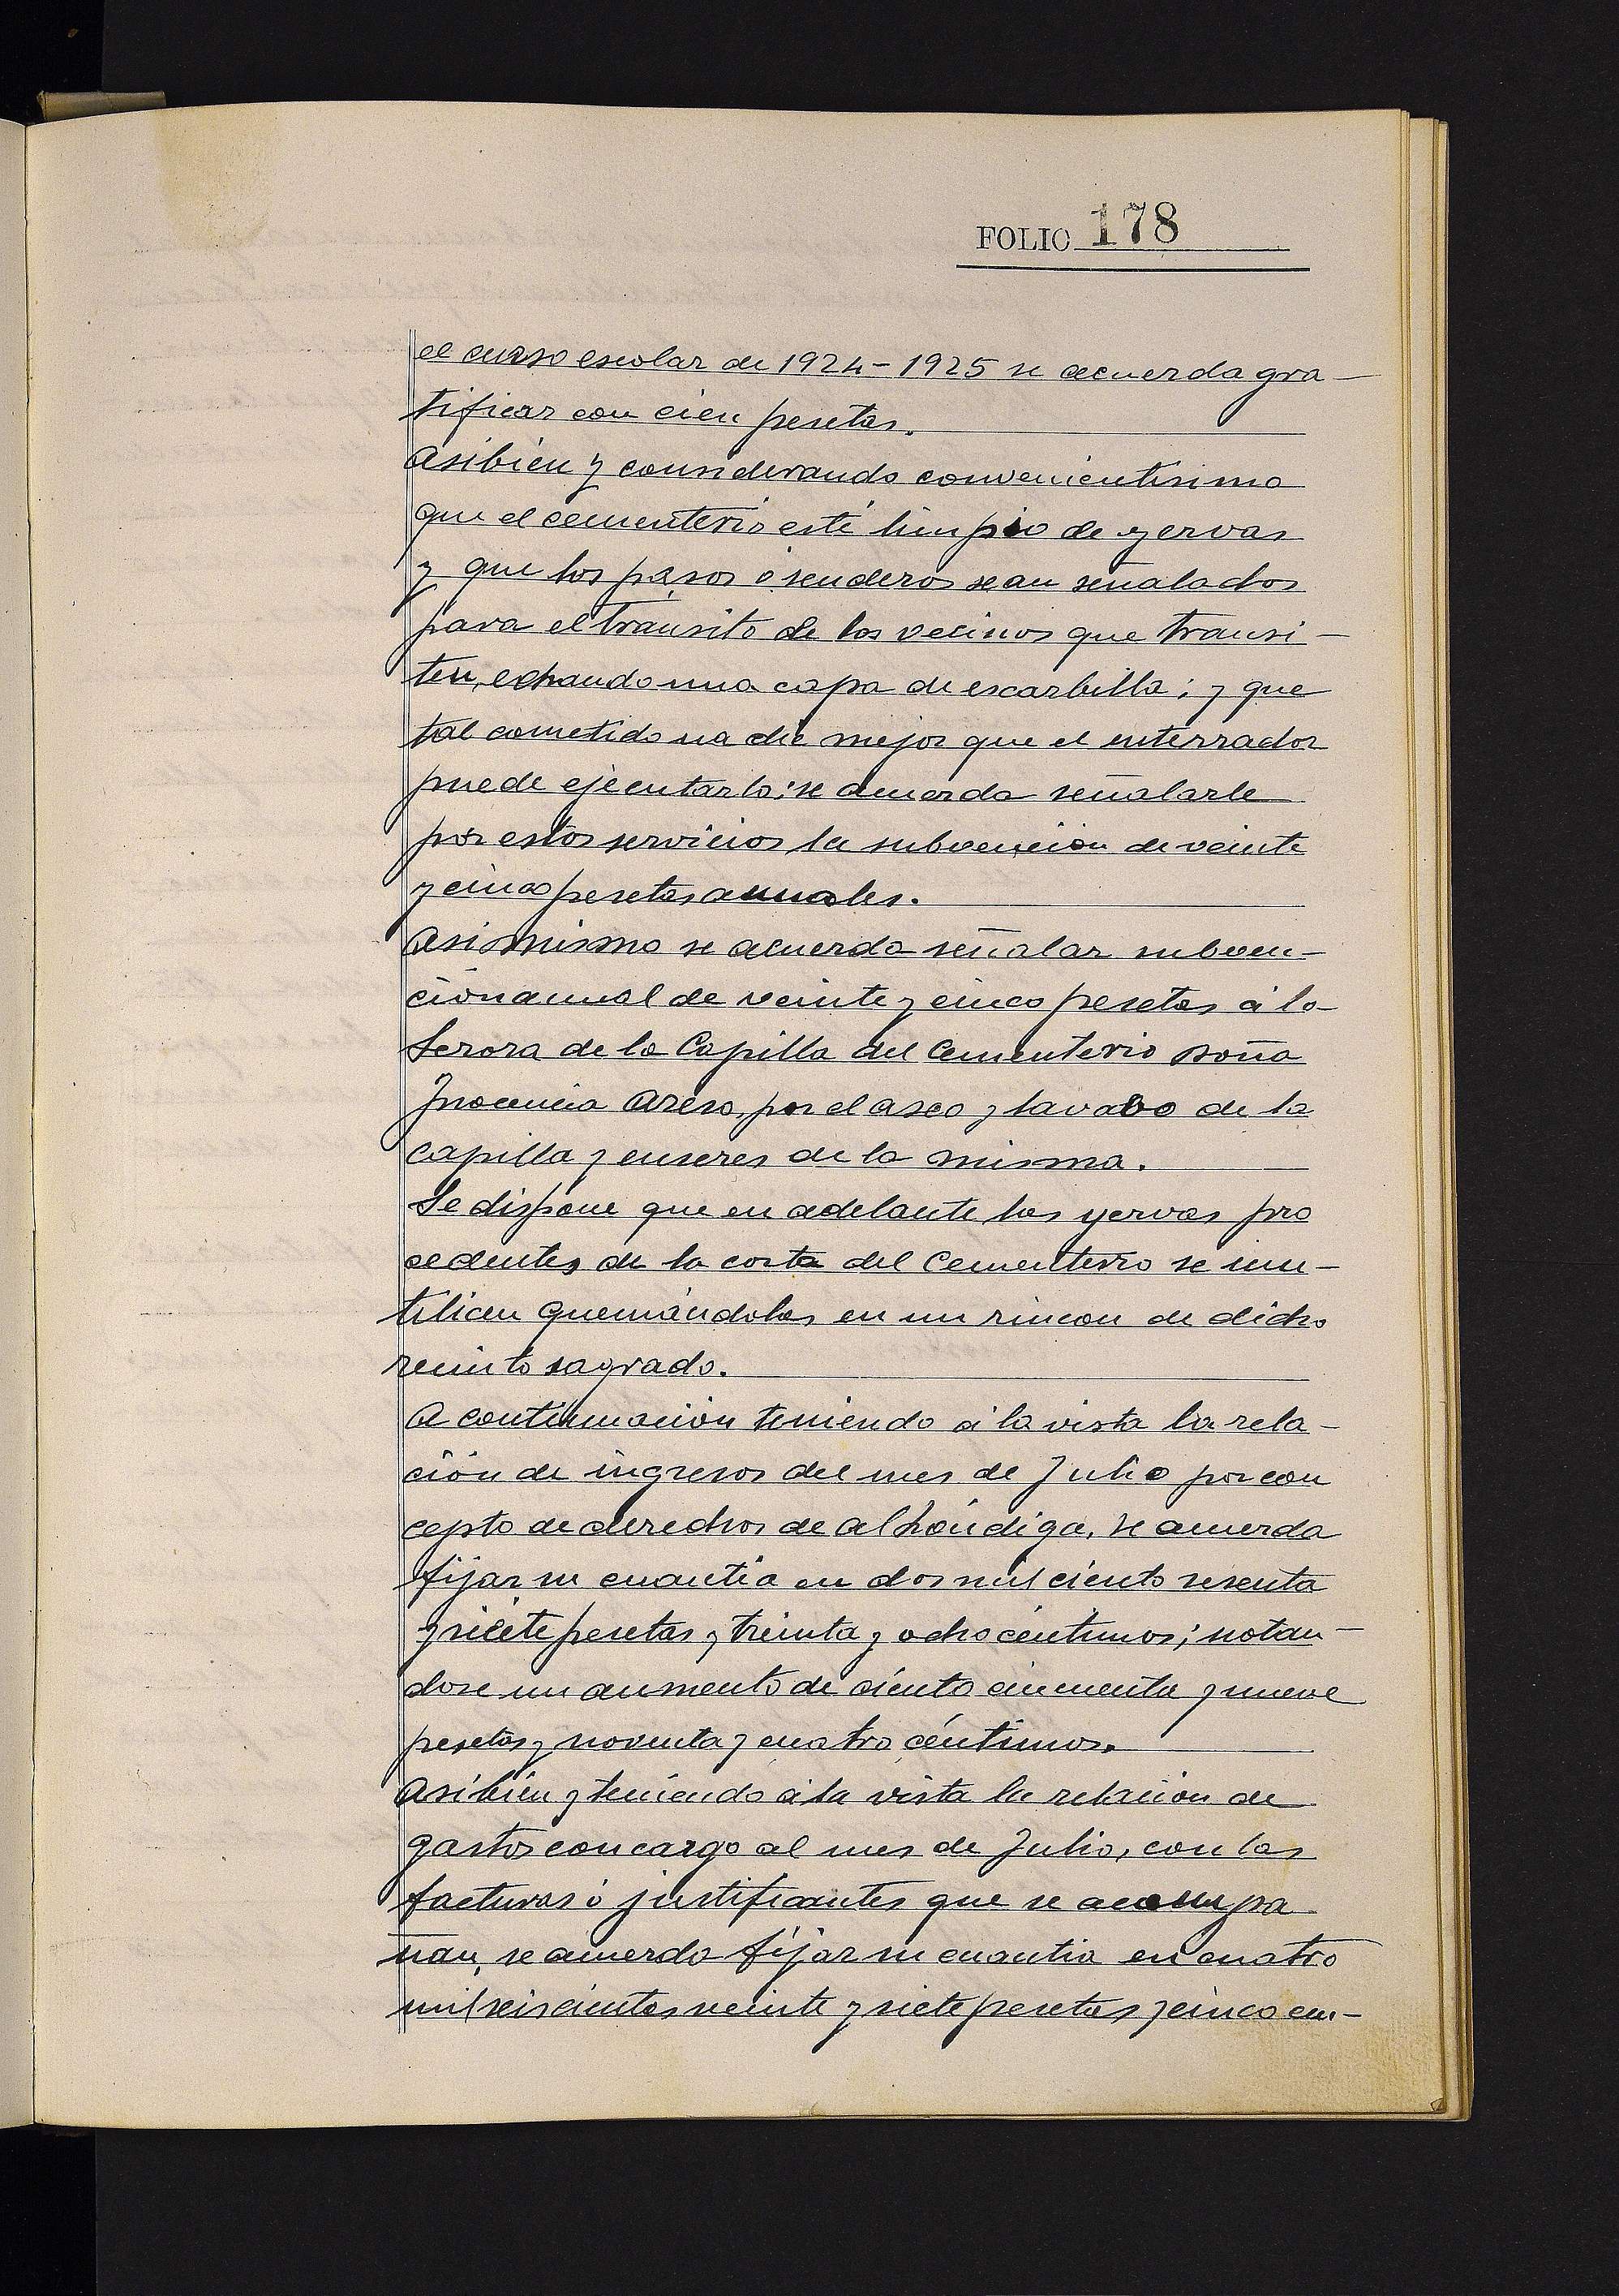 FOLIO 178
el curso escolar de 1924-1925 se acuerda gra-
tificar con cien pesetas.
Asibien y considerando convenientisimo
que el cementerio esté limpio de yervas
y que los pasos ó senderos sean señalados
para el transito de los vecinos que transi-
ten, echando una capa de escarbilla; y que
tal cometido nadie mejor que el enterrador
puede ejecutarlo; se acuerda señalarle
por estos servicios la subvencion de veinte
y cinco pesetas anuales.
Asi mismo se acuerda señalar subven-
ción anual de veinte y cinco pesetas á la
Serora de la Capilla del Cementerio Doña
Inocencia Areso, por el aseo y lavabo de la
capilla y enseres de la misma.
Se dispone que en adelante las yervas pro
cedentes de la corta del Cementerio se inu-
tilicen quemándolas en un rincon de dicho
recinto sagrado.
A continuación teniendo á la vista la rela-
ción de ingresos del mes de Julio por con
cepto de derechos de alhóndiga, se acuerda
fijar su cuantia en dos mil ciento sesenta
y siete pesetas y treinta y ocho céntimos; notan-
dose un aumento de ciento cincuenta y nueve
pesetas y noventa y cuatro céntimos.
Asibien y teniendo á la vista la relacion de
gastos con cargo al mes de Julio, con las
facturas ó justificantes que se acompa
ñan, se acuerda fijar su cuantia en cuatro
mil seiscientas veinte y siete pesetas y cinco cen-